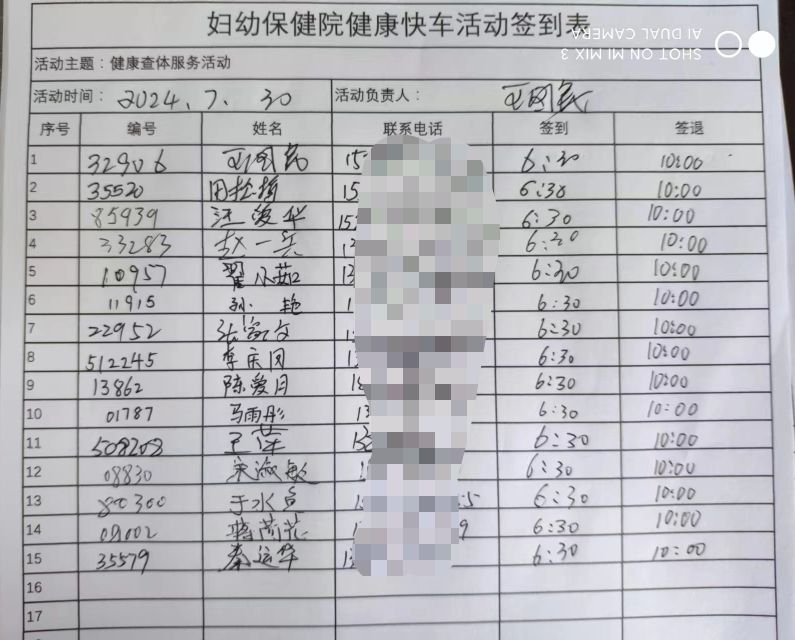 妇幼保健院健康快车活动签到表
SHOT ON MI MIX 3
AI DUAL CAMERA
活动主题：健康查体服务活动
活动时间： 2024.7.30 活动负责人：
序号 编号 姓名 联系电话 签到 签退
1 32906 15 6:30 10:00
2 35520 15 6:30 10:00
3 85939 汪爱华 15 6:30 10:00
4 33283 赵一兵 6:30 10:00
5 10957 翟小茹 13 6:30 10:00
6 11915 孙艳 1 6:30 10:00
7 22952 6:30 10:00
8 512245 李庆国 6:30 10:00
9 13862 陈爱月 6:30 10:00
10 01787 马雨彤 13 6:30 10:00
11 508208 6:30 10:00
12 08830 宋淑敏 1 6:30 10:00
13 80300 于水 5 6:30 10:00
14 09002 蒋荷花 9 6:30 10:00
15 35579 秦运华 13 6:30 10:00
16
17